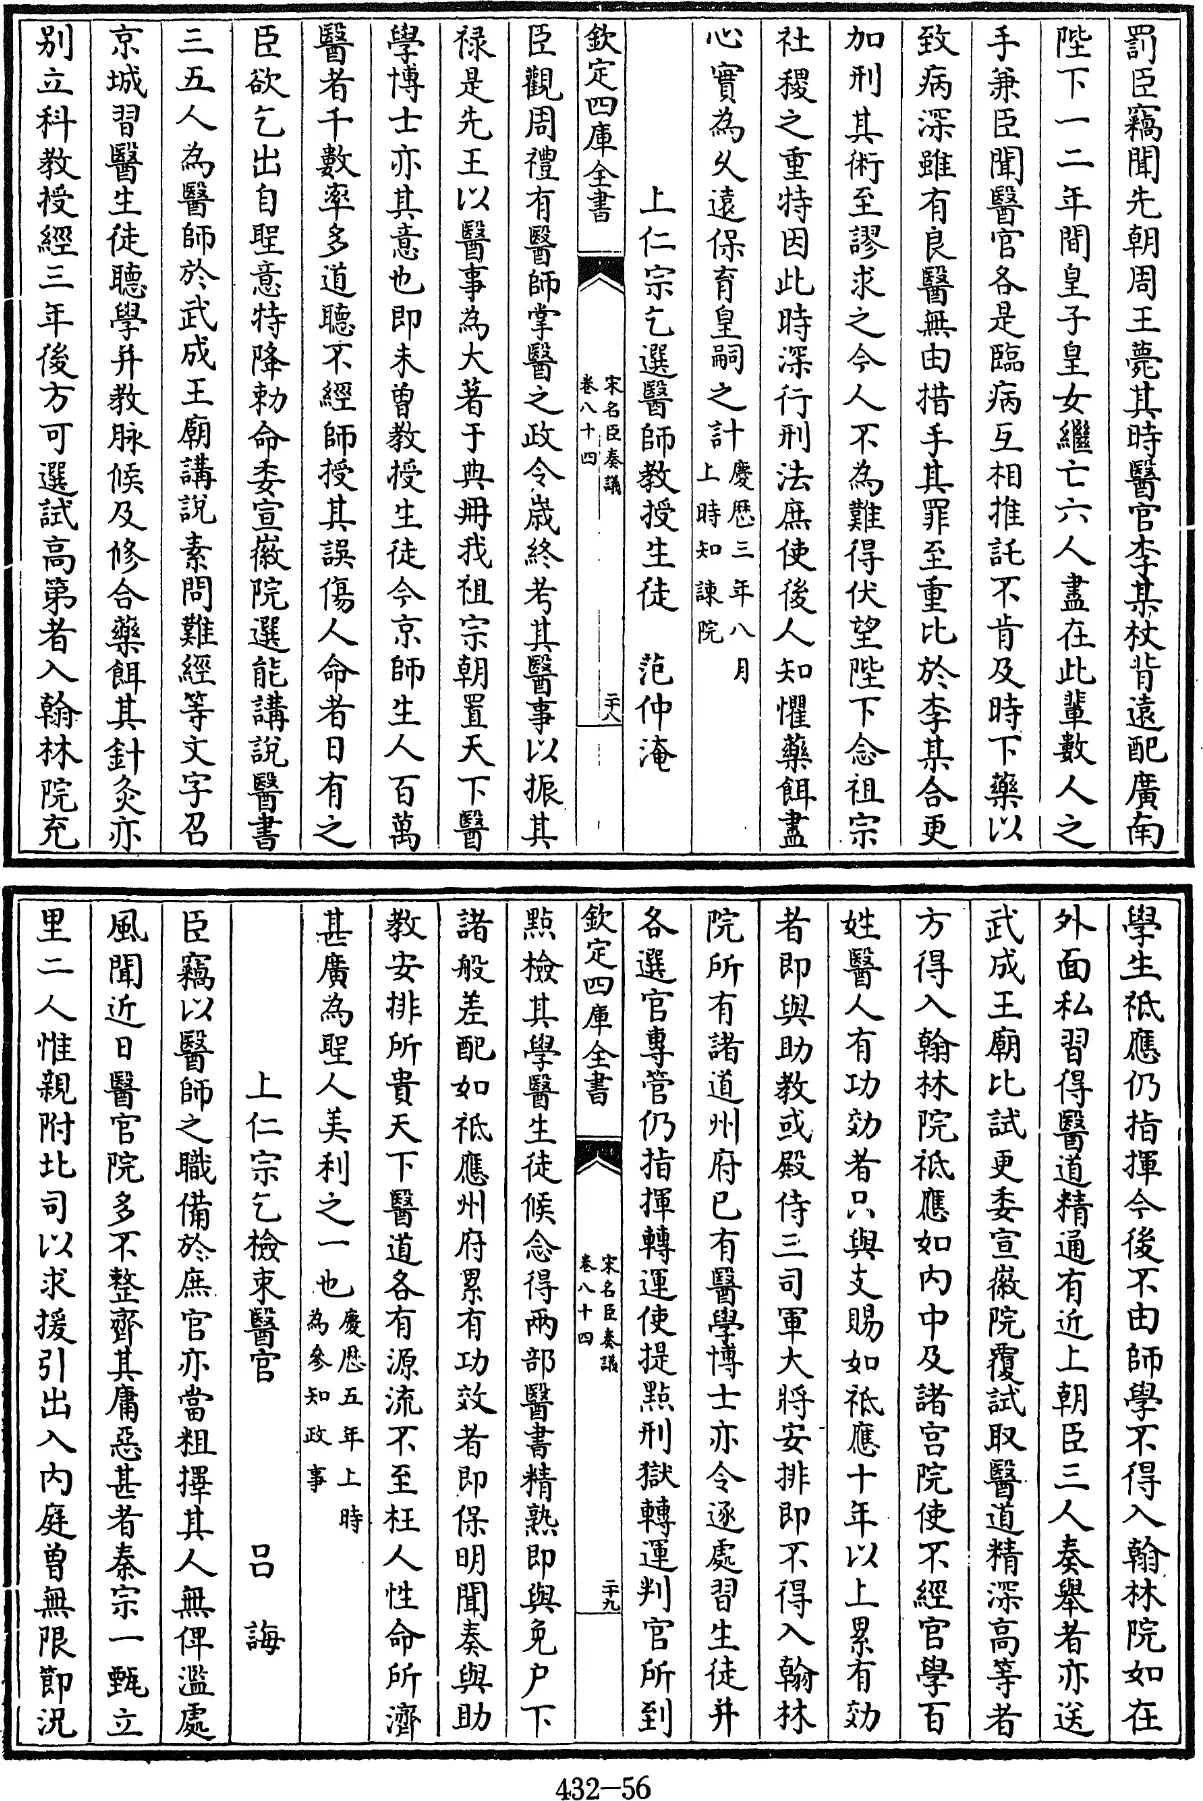 罰臣竊聞先朝周王薨其時醫官李某杖背遠配廣南
陛下一二年間皇子皇女繼亡六人盡在此輩數人之
手兼臣聞醫官各是臨病互相推託不肯及時下藥以
致病深雖有良醫無由措手其罪至重比於李某合更
加刑其術至謬求之今人不為難得伏望陛下念祖宗
社稷之重特因此時深行刑法庶使後人知懼藥餌盡
心實為久遠保育皇嗣之計慶厯三年八月
上時知諫院
上仁宗乞選醫師教授生徒 范仲淹
欽定四庫全書
宋名臣奏議
卷八十四
二十八
臣觀周禮有醫師掌醫之政令歲終考其醫事以振其
祿是先王以醫事為大著于典冊我祖宗朝置天下醫
學博士亦其意也即未曾教授生徒今京師生人百萬
醫者千數率多道聽不經師授其誤傷人命者日有之
臣欲乞出自聖意特降勅命委宣徽院選能講說醫書
三五人為醫師於武成王廟講說素問難經等文字召
京城習醫生徒聽學并教脉候及修合藥餌其針灸亦
別立科教授經三年後方可選試高第者入翰林院充
學生祗應仍指揮今後不由師學不得入翰林院如在
外面私習得醫道精通有近上朝臣三人奏舉者亦送
武成王廟比試更委宣徽院覆試取醫道精深高等者
方得入翰林院祗應如內中及諸宮院使不經官學百
姓醫人有功效者只與支賜如祗應十年以上累有效
者即與助教或殿侍三司軍大將安排即不得入翰林
院所有諸道州府已有醫學博士亦令逐處習生徒并
各選官專管仍指揮轉運使提點刑獄轉運判官所到
欽定四庫全書
宋名臣奏議
卷八十四
二十九
點檢其學醫生徒候念得兩部醫書精熟即與免户下
諸般差配如祗應州府累有功效者即保明聞奏與助
教安排所貴天下醫道各有源流不至枉人性命所濟
甚廣為聖人美利之一也慶厯五年上時
為參知政事
上仁宗乞檢束醫官 呂誨
臣竊以醫師之職備於庶官亦當粗擇其人無俾濫處
風聞近日醫官院多不整齊其庸惡甚者秦宗一甄立
里二人惟親附北司以求援引出入內庭曾無限節況
432-56